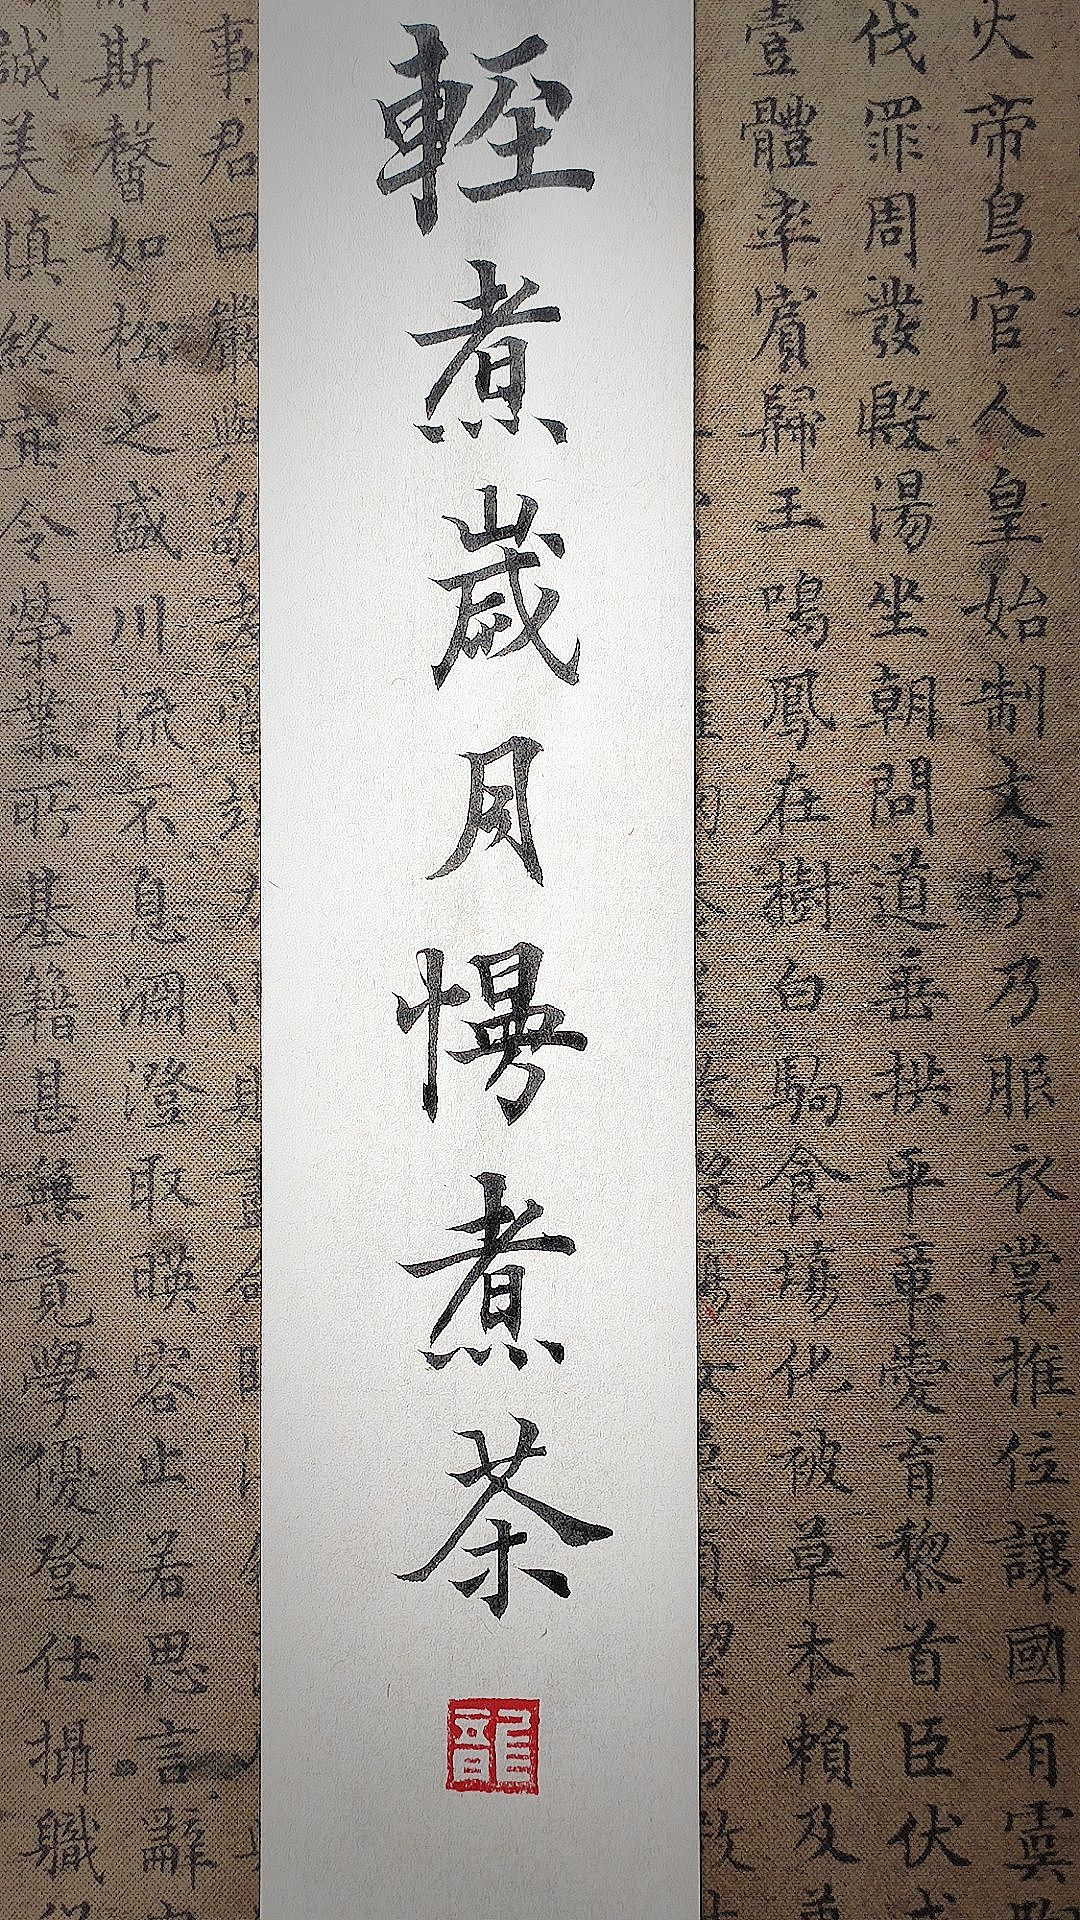 火帝鳥官人皇始制文字乃服衣裳推位讓國有虞陶
伐罪周發殷湯坐朝問道垂拱平章愛育黎首臣伏戎
壹體率賓歸王鳴鳳在樹白駒食場化被草木賴及萬
輕煮歲月慢煮茶
龍
事君曰嚴與
斯馨如松之盛川流不息淵澄取暎容止若思言辭
誠美慎終宜令榮業所基籍甚無竟學優登仕攝職從